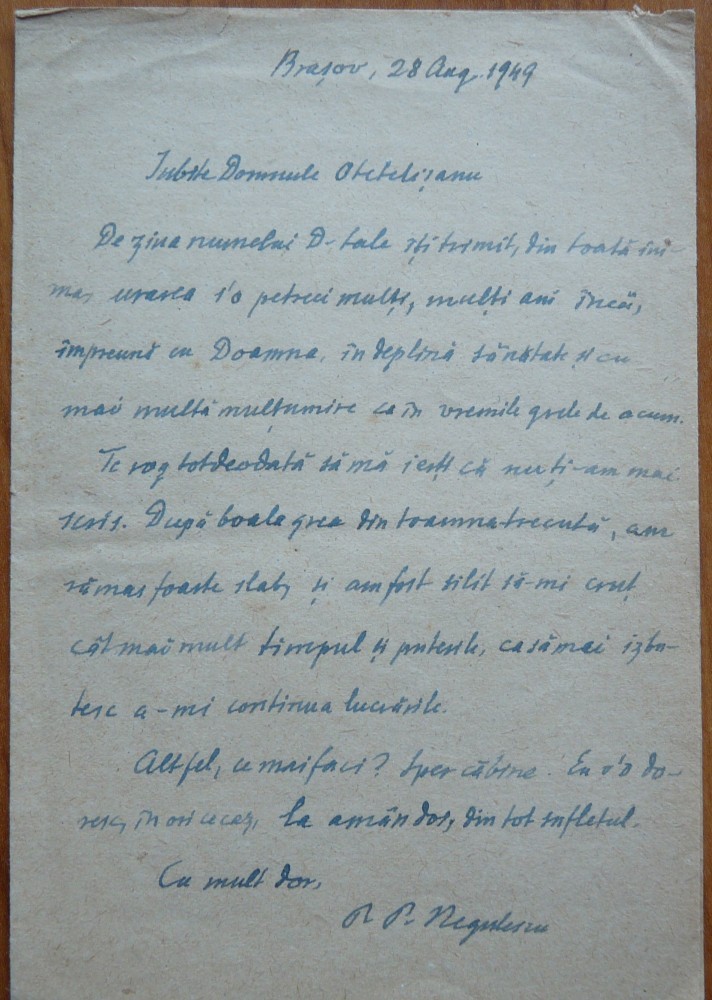 Brașov, 28 Aug. 1949
Iubite Domnule Otetelișanu
De ziua numelui D-tale îți trimit, din toată ini-
ma, urarea s'o petreci mulți, mulți ani încă,
împreună cu Doamna, în deplină sănătate și cu
mai multă mulțumire ca în vremile grele de acum.
Te rog totdeodată să mă ierți că nu ți-am mai
scris. După boala grea din toamna trecută, am
rămas foarte slab, și am fost silit să-mi cruț
cât mai mult timpul și puterile, ca să mai izbu-
tesc a-mi continua lucrările.
Altfel, ce mai faci? Sper că bine. Eu v'o do-
resc, în ori ce caz, la amândoi, din tot sufletul.
Cu mult dor,
P. P. Negulescu